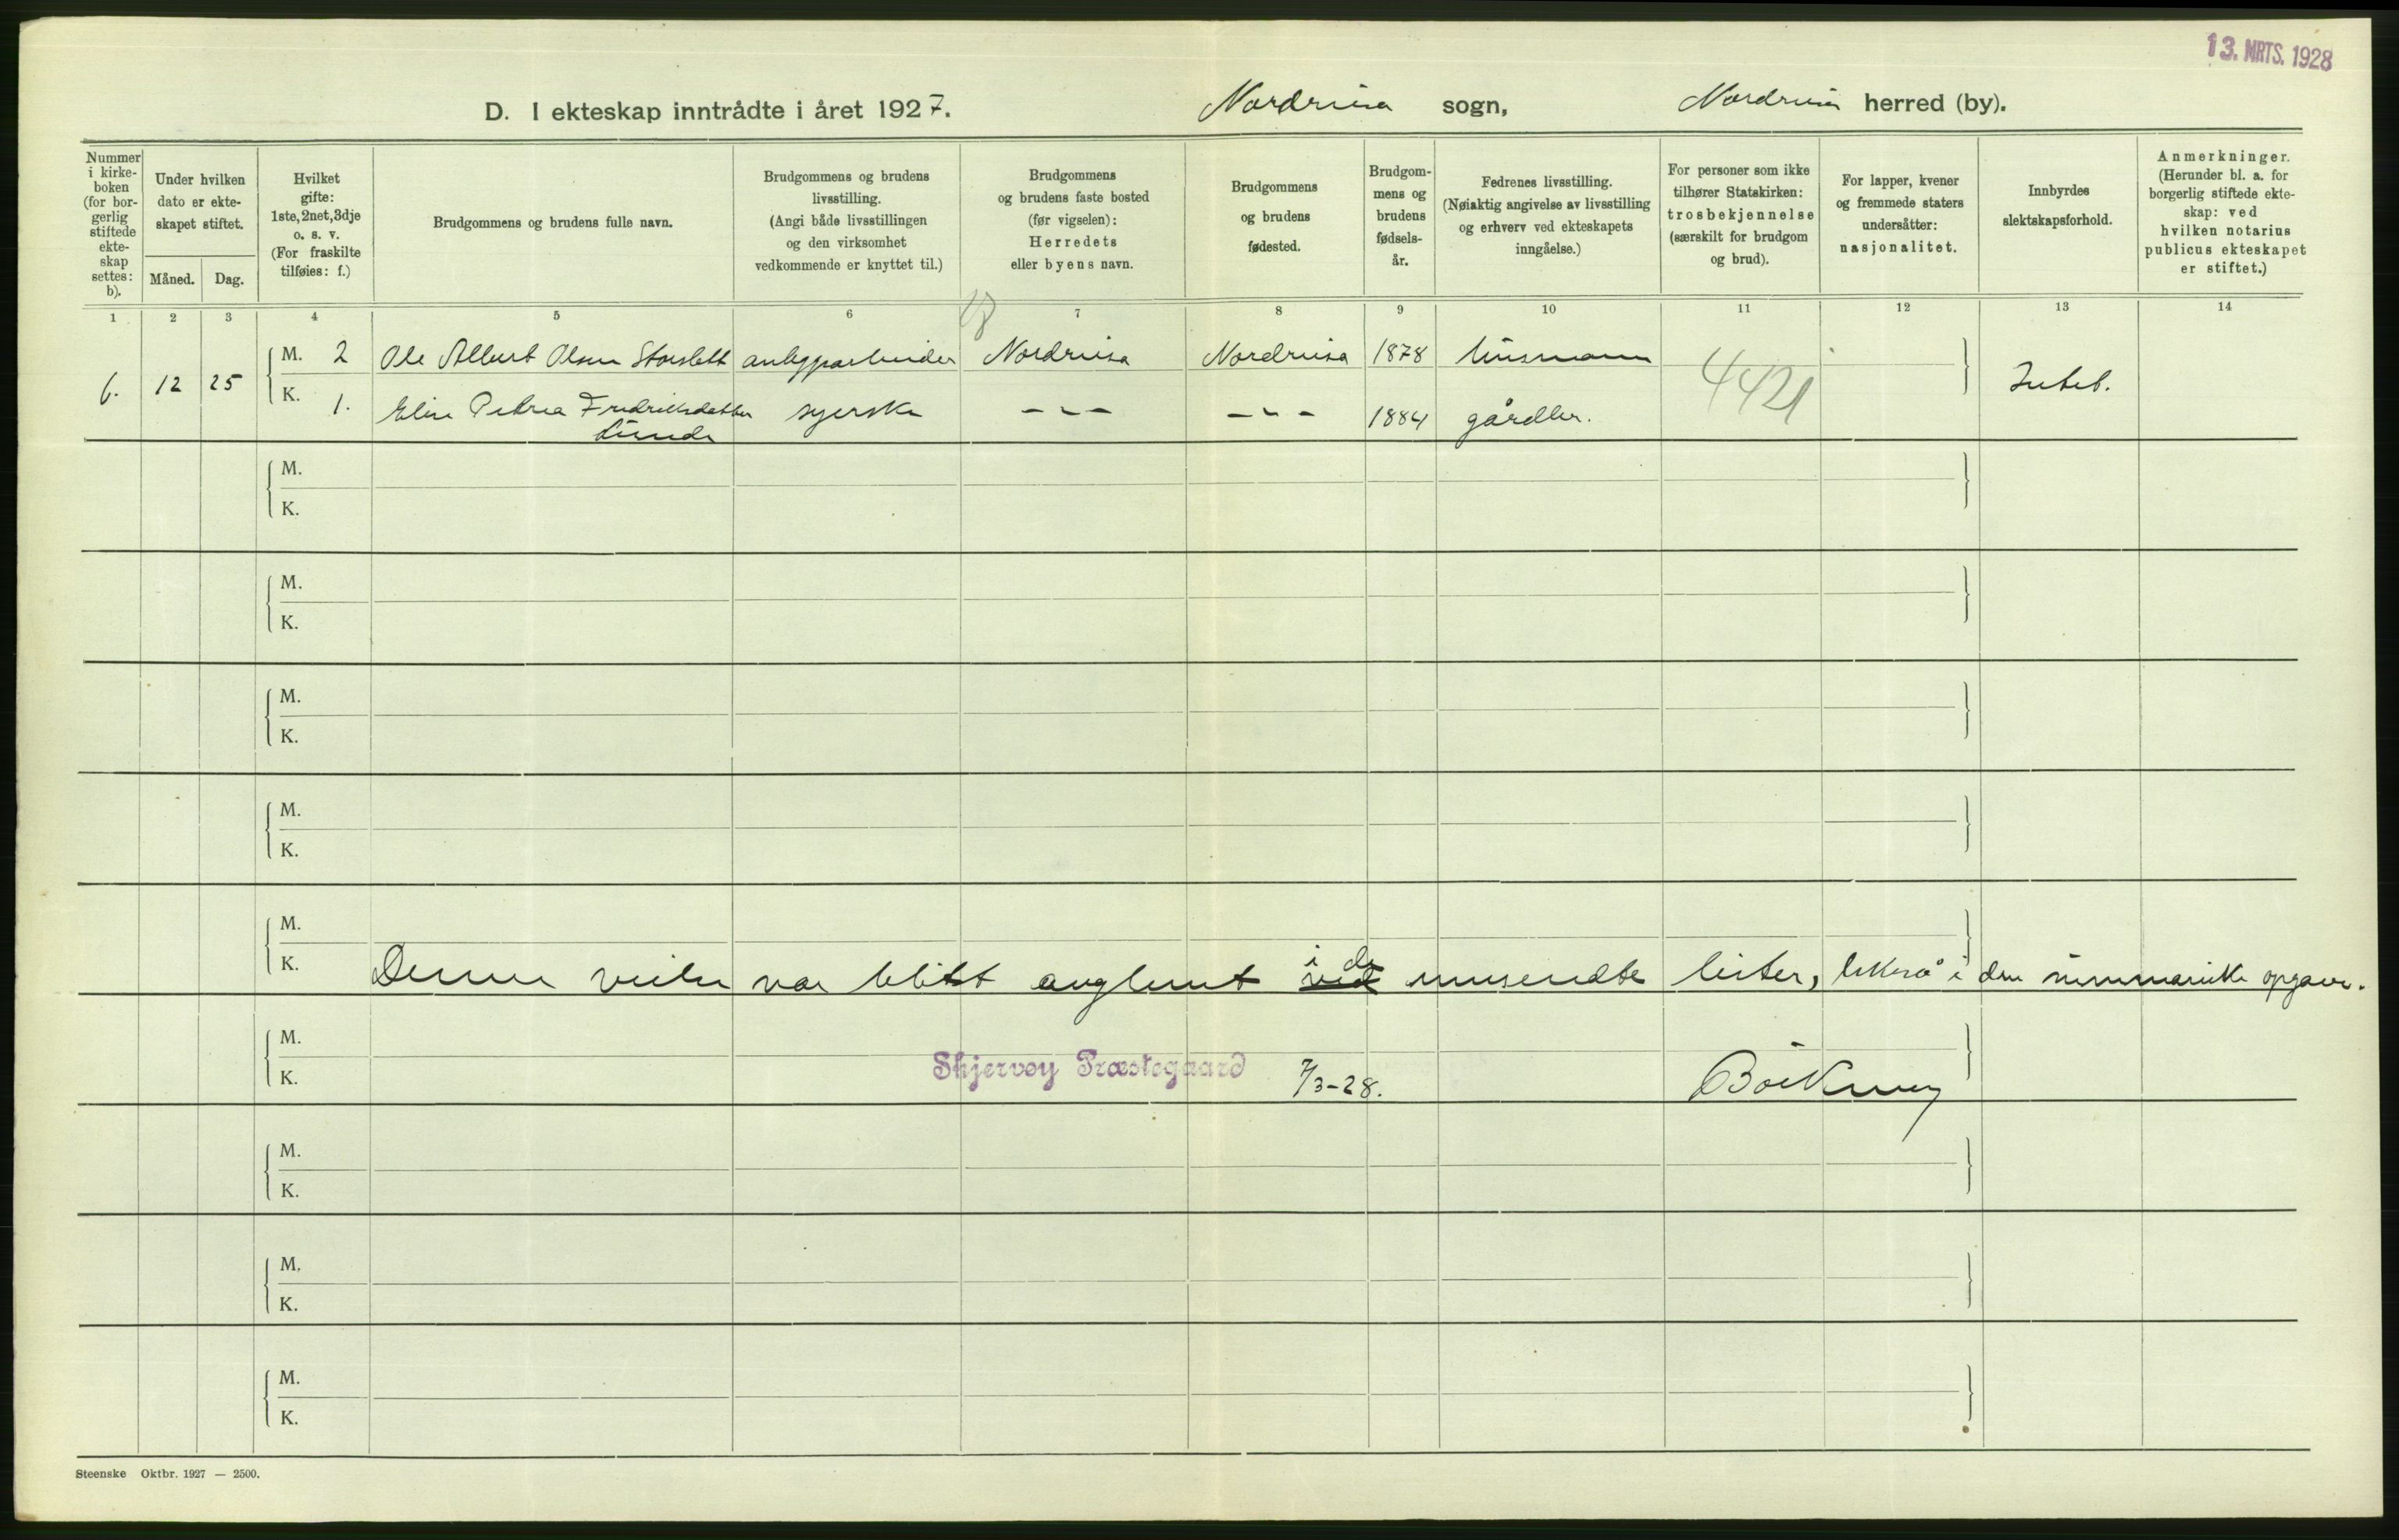 13. MRTS. 1928
D. I ekteskap inntrådte i året 1927. Nordreisa sogn, Nordreisa herred (by).
Nummer i kirke-boken (for bor-gerlig stiftede ekte-skap settes: b).
Under hvilken dato er ekte-skapet stiftet.
Måned. Dag.
Hvilket gifte: 1ste, 2net, 3dje o. s. v. (For fraskilte tilføies: f.)
Brudgommens og brudens fulle navn.
Brudgommens og brudens livsstilling. (Angi både livsstillingen og den virksomhet vedkommende er knyttet til.)
Brudgommens og brudens faste bosted (før vigselen): Herredets eller byens navn.
Brudgommens og brudens fødested.
Brudgom-mens og brudens fødsels-år.
Fedrenes livsstilling. (Nøiaktig angivelse av livsstilling og erhverv ved ekteskapets inngåelse.)
For personer som ikke tilhører Statskirken: trosbekjennelse (særskilt for brudgom og brud).
For lapper, kvener og fremmede staters undersåtter: nasjonalitet.
Innbyrdes slektskapsforhold.
Anmerkninger. (Herunder bl. a. for borgerlig stiftede ekte-skap: ved hvilken notarius publicus ekteskapet er stiftet.)
1 2 3 4 5 6 7 8 9 10 11 12 13 14
6. 12 25 M. 2 Ole Albert Olsen Storslett anleggsarbeider Nordreisa Nordreisa 1878 husmann 4421 Intet.
K. 1. Elise Petrea Fredriksdatter syerske - - - - - - 1884 gårdbr.
Lunde
M.
K.
M.
K.
M.
K.
M.
K.
M.
i de
K. Denne vielse var blitt avglemt ved innsendte lister, likeså i den summariske opgave.
M.
K. Skjervøy Præstegaard 7/3-28.
M.
K.
M.
K.
M.
K.
Steenske Oktbr. 1927 — 2500.